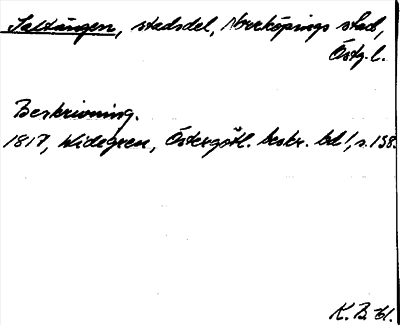 Saltängen, stadsdel, Norrköpings stad,
Östg. l.
Beskrivning.
1817, Widegren, Östergötl. beskr. bd 1, s. 138.
K. B. Bl.